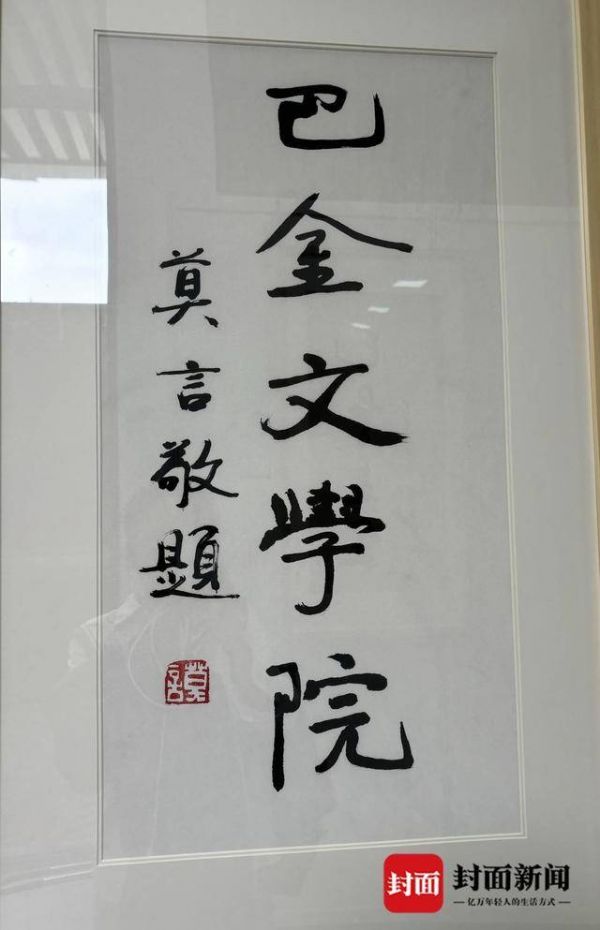 巴金文學院
莫言敬題
莫言
封面
封面新闻
亿万年轻人的生活方式